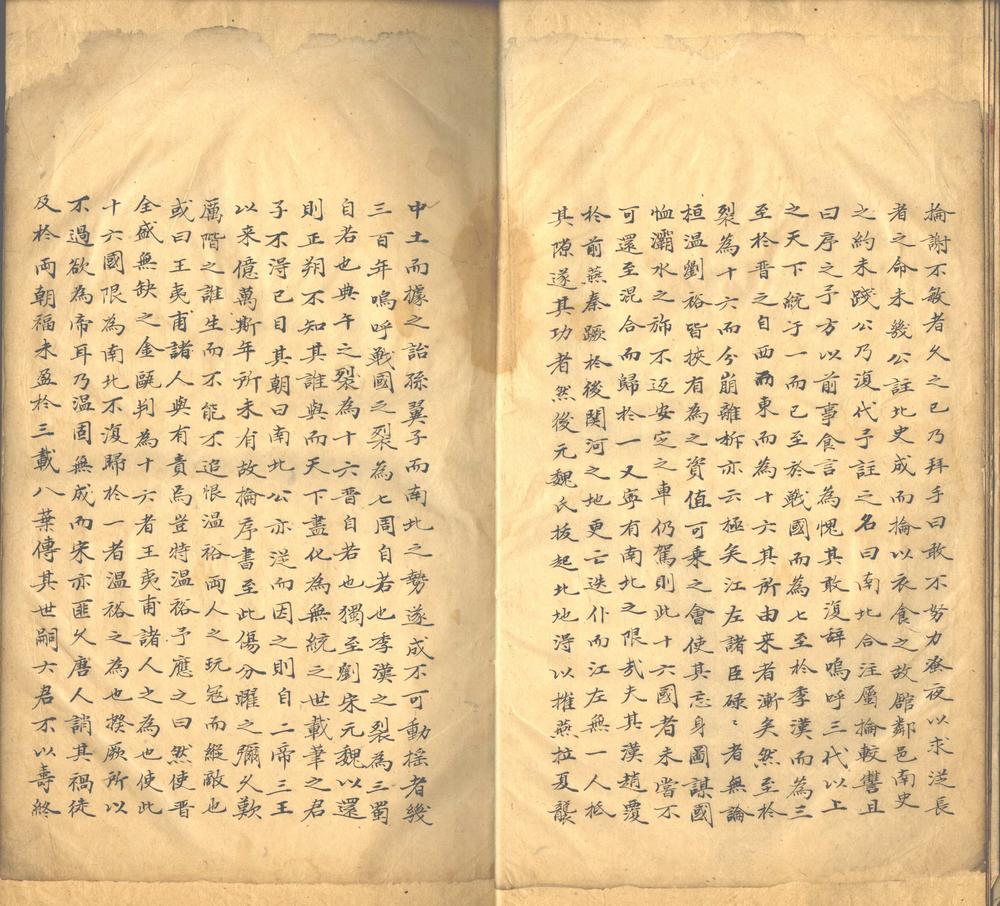 掄謝不敏者久之已乃拜手曰敢不努力蚤夜以求從長
者之命未幾公註北史成而掄以衣食之故館鄰邑南史
之約未踐公乃復代予註之名曰南北合注屬掄較讐且
曰序之予方以前事食言為愧其敢復辭嗚呼三代以上
之天下統于一而已至於戰國而為七至於季漢而為三
至於晉之自西而東而為十六其所由来者漸矣然至於
裂為十六而分崩離柝亦云極矣江左諸臣碌〻者無論
桓温劉裕皆挾有為之資值可乘之會使其忘身圖謀國
恤灞水之旆不返安定之車仍駕則此十六國者未嘗不
可還至混合而歸於一又寧有南北之限㢤夫其漢趙覆
於前燕秦蹶於後関河之地更亡迭仆而江左無一人抵
其隙遂其功者然後元魏氏拔起北地淂以摧燕拉夏襲
中土而據之詒孫翼子而南北之勢遂成不可動揺者幾
三百年嗚呼戰國之裂為七周自若也季漢之裂為三蜀
自若也典午之裂為十六晉自若也獨至劉宋元魏以還
則正朔不知其誰與而天下盡化為無統之世載筆之君
子不淂已目其朝曰南北公亦従而因之則自二帝三王
以来億萬斯年所未有故掄序書至此傷分曜之彌久歎
厲階之誰生而不能不追恨温裕兩人之玩宼而縱敵也
或曰王夷甫諸人與有責焉豈特温裕予應之曰然使晉
全盛無缺之金甌判為十六者王夷甫諸人之為也使此
十六國限為南北不復歸於一者温裕之為也揆厥所以
不過欲為帝耳乃温固無成而宋亦匪久唐人誚其禍徒
及於两朝福未盈於三載八葉傳其世嗣六君不以壽終